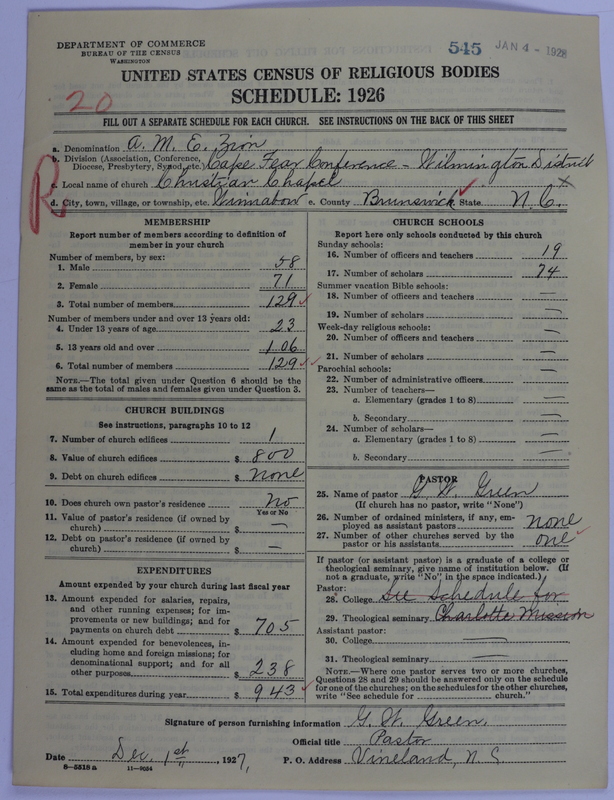 DEPARTMENT OF COMMERCE
BUREAU OF THE CENSUS
WASHINGTON
545 JAN 4 - 1928
UNITED STATES CENSUS OF RELIGIOUS BODIES
20
SCHEDULE: 1926
FILL OUT A SEPARATE SCHEDULE FOR EACH CHURCH. SEE INSTRUCTIONS ON THE BACK OF THIS SHEET
R
a. Denomination A. M. E. Zion
b. Division (Association, Conference, Diocese, Presbytery, Synod, etc.) Cape Fear Conference - Wilmington District
c. Local name of church Christian Chapel
d. City, town, village, or township, etc. Winnabow e. County Brunswick State N. C.
MEMBERSHIP
Report number of members according to definition of
member in your church
Number of members, by sex:
1. Male 58
2. Female 71
3. Total number of members 129
Number of members under and over 13 years old:
4. Under 13 years of age 23
5. 13 years old and over 106
6. Total number of members 129
NOTE.—The total given under Question 6 should be the
same as the total of males and females given under Question 3.
CHURCH BUILDINGS
See instructions, paragraphs 10 to 12
7. Number of church edifices 1
8. Value of church edifices $ 800
9. Debt on church edifices $ none
10. Does church own pastor's residence? No
Yes or No
11. Value of pastor's residence (if owned by
church) $ —
12. Debt on pastor's residence (if owned by
church) $ —
EXPENDITURES
Amount expended by your church during last fiscal year
13. Amount expended for salaries, repairs,
and other running expenses; for im-
provements or new buildings; and for
payments on church debt $ 705
14. Amount expended for benevolences, in-
cluding home and foreign missions; for
denominational support; and for all
other purposes $ 238
15. Total expenditures during year $ 943
CHURCH SCHOOLS
Report here only schools conducted by this church
Sunday schools:
16. Number of officers and teachers 19
17. Number of scholars 74
Summer vacation Bible schools:
18. Number of officers and teachers —
19. Number of scholars —
Week-day religious schools:
20. Number of officers and teachers —
21. Number of scholars —
Parochial schools:
22. Number of administrative officers —
23. Number of teachers—
a. Elementary (grades 1 to 8) —
b. Secondary —
24. Number of scholars—
a. Elementary (grades 1 to 8) —
b. Secondary —
PASTOR
25. Name of pastor G. W. Green
(If church has no pastor, write "None")
26. Number of ordained ministers, if any, em-
ployed as assistant pastors none
27. Number of other churches served by the
pastor or his assistants one
If pastor (or assistant pastor) is a graduate of a college or
theological seminary, give name of institution below. (If
not a graduate, write "No" in the space indicated.)
Pastor:
28. College See Schedule for
29. Theological seminary Charlotte Mission
Assistant pastor:
30. College —
31. Theological seminary —
NOTE.—Where one pastor serves two or more churches,
Questions 28 and 29 should be answered only on the schedule
for one of the churches; on the schedules for the other churches,
write "See schedule for church."
Signature of person furnishing information G. W. Green,
Official title Pastor
Date Dec. 1st, 1927, P. O. Address Vineland, N. C
8—5518 a 11—9034